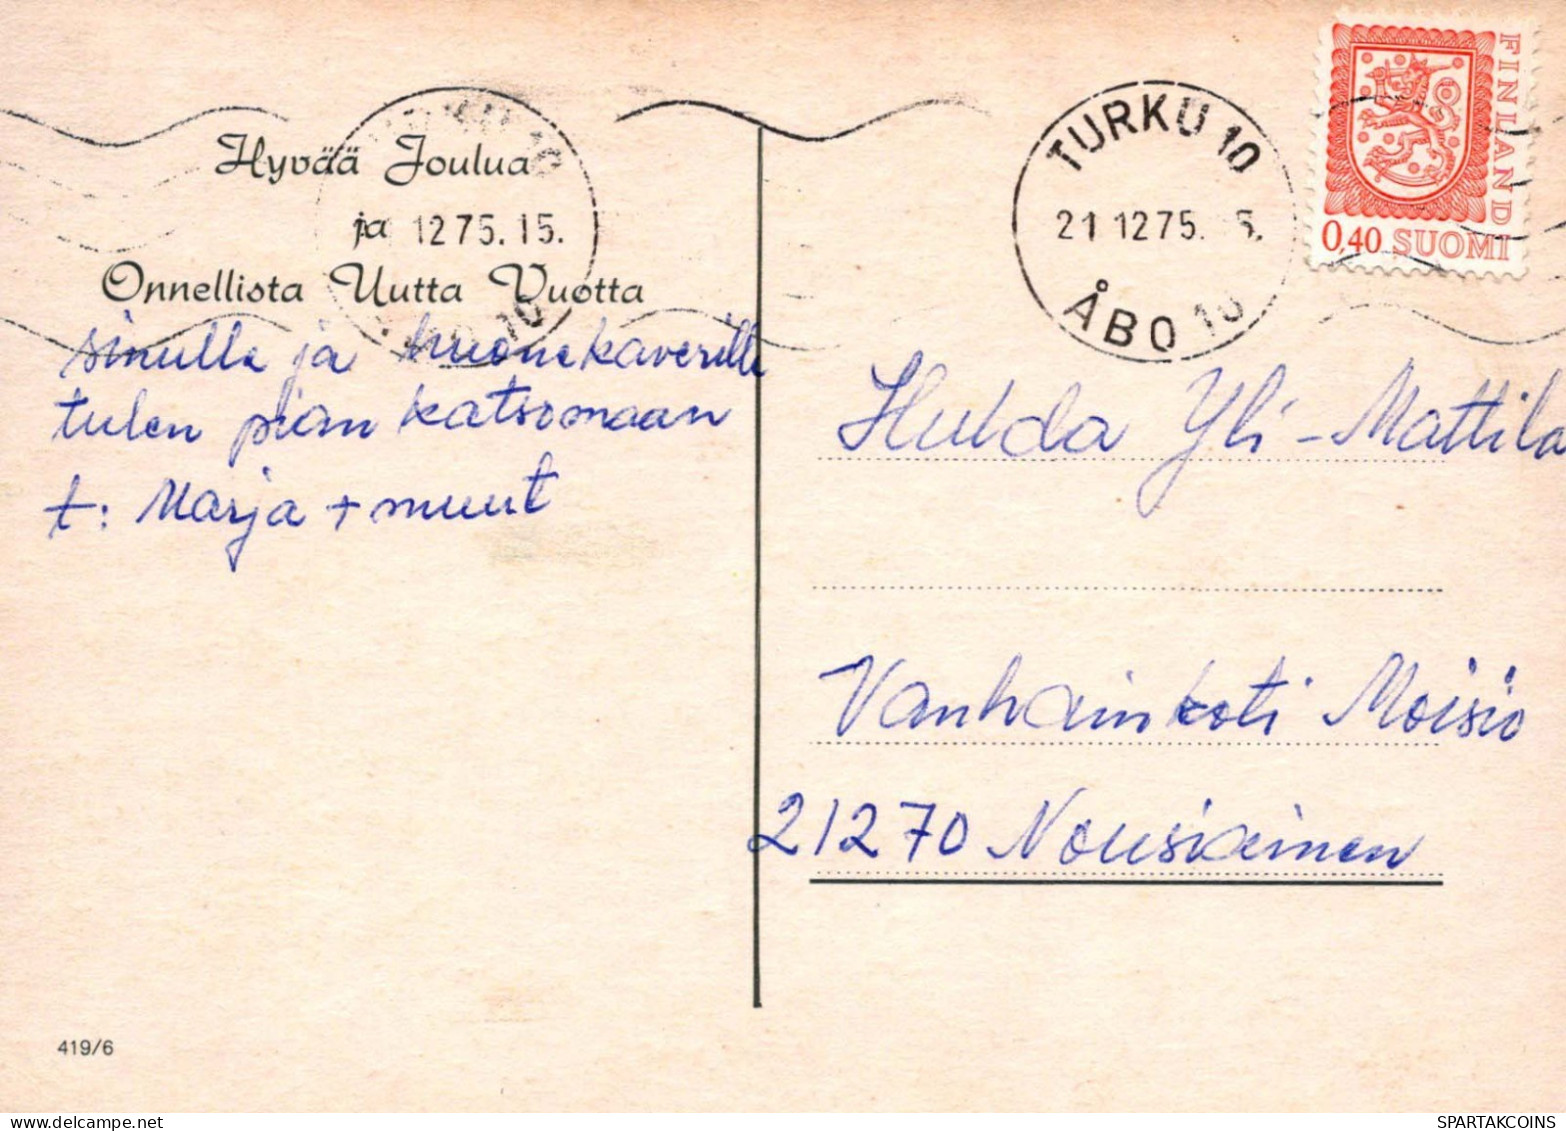 Hyvää Joulua
ja
Onnellista Uutta Vuotta
sinulle ja huonekaverille
tulen pian katsomaan
t: Marja + muut
419/6
12 75. 15.
10
TURKU 10
21 12 75. 5.
ÅBO 10
FINLAND
0,40 SUOMI
Hulda Yli-Mattila
Vanhainkoti Moisio
21270 Nousiainen
SPARTAKCOINS